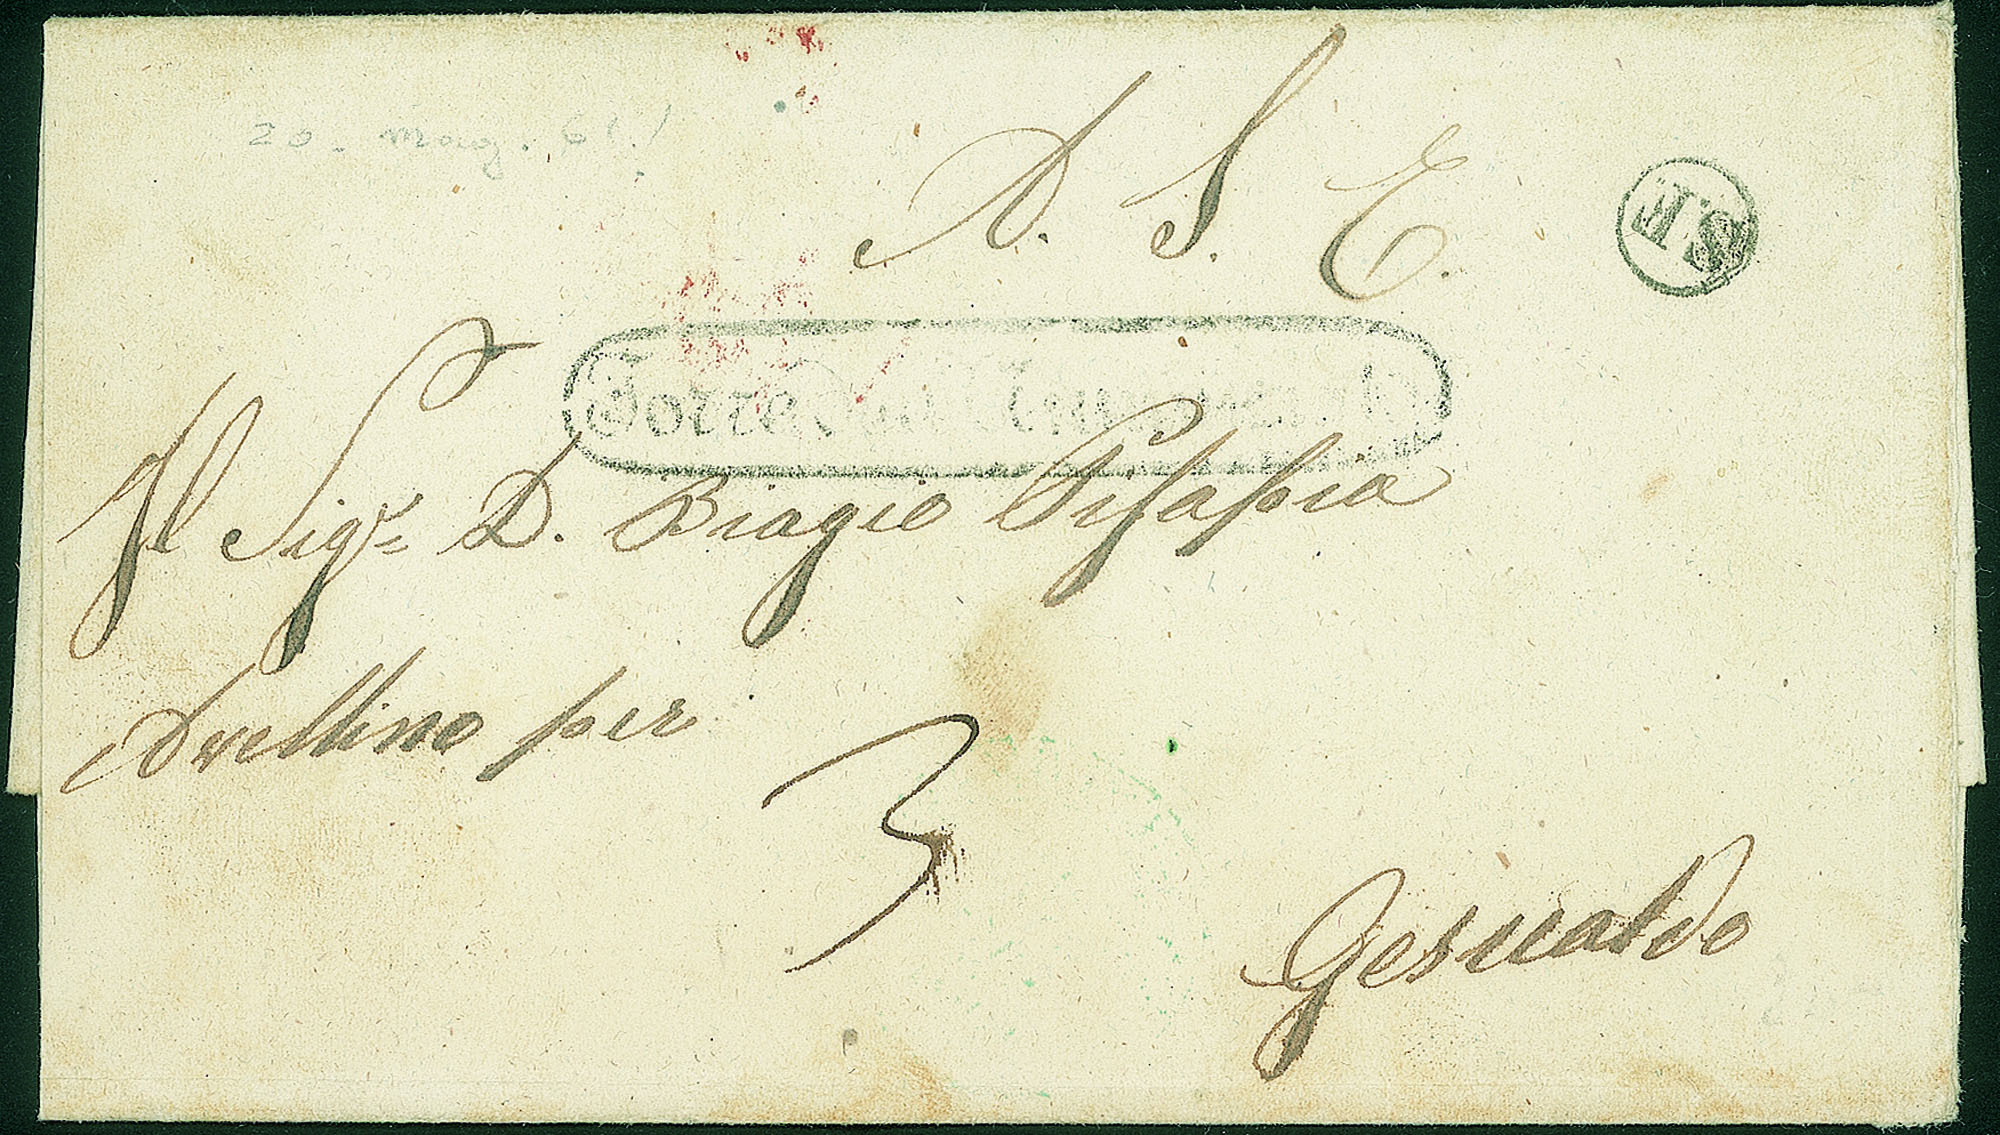 20. Mag. 61
A. S. E.
S.F
Torre
Il Sigr D. Biagio Pisapia
Avellino per
3
Gesualdo